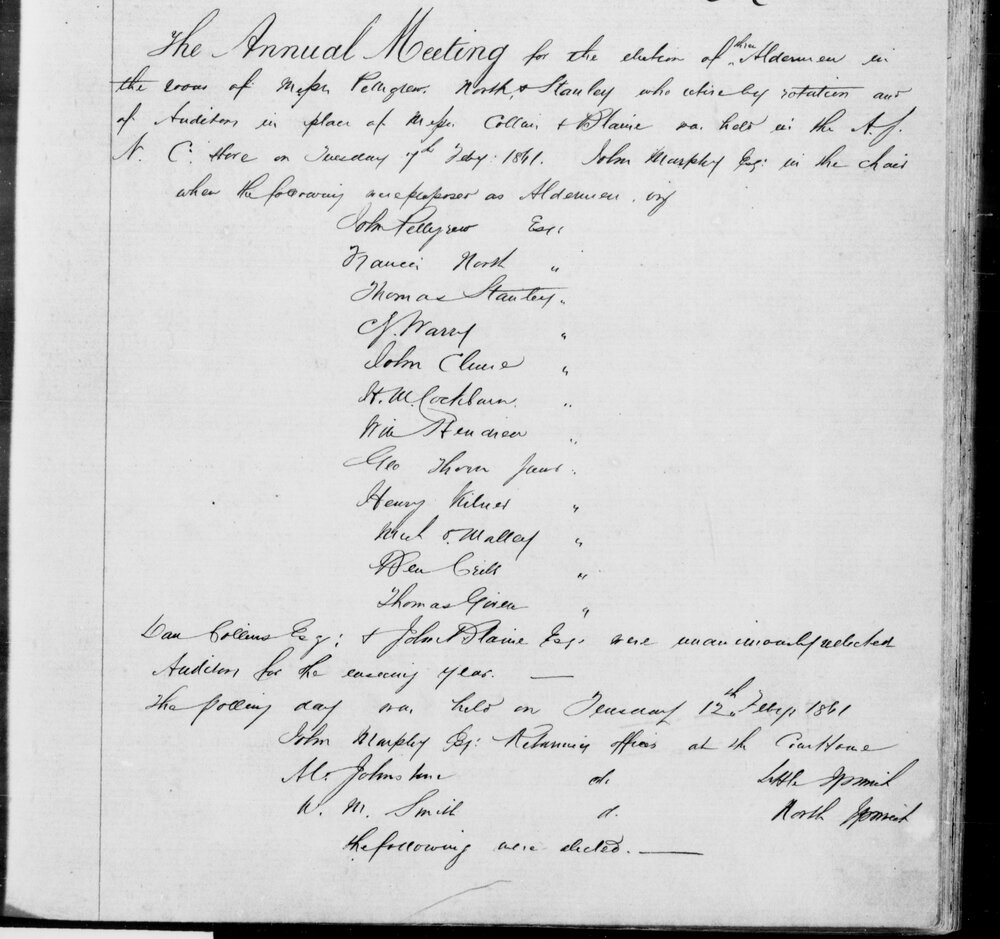 The Annual Meeting for the election of three Aldermen in
the room of Messrs Pettigrew, North, & Stanley who retire by rotation and
of Auditors in place of Messrs Collins & Blaine was held in the A.S.
N. C. store on Tuesday 7th Feby: 1861. John Murphy Esq: in the chair
when the following were proposed as Aldermen. viz
John Pettigrew Esq:
Francis North "
Thomas Stanley "
C J. Warry "
John Clune "
H. M. Cockburn "
Wm Hendren "
Geo Thorn Junr "
Henry Kilner "
Mich O. Malley "
Ben Cribb "
Thomas Given "
Dan Collins Esq: & John Blaine Esq: were unanimously elected
Auditors for the ensuing year. —
The polling day was held on Tuesday 12th Feby 1861
John Murphy Esq: Returning officer at the Court House
Mr Johnstone do. Little Ipswich
W. M. Smith d. North Ipswich
the following were elected. —